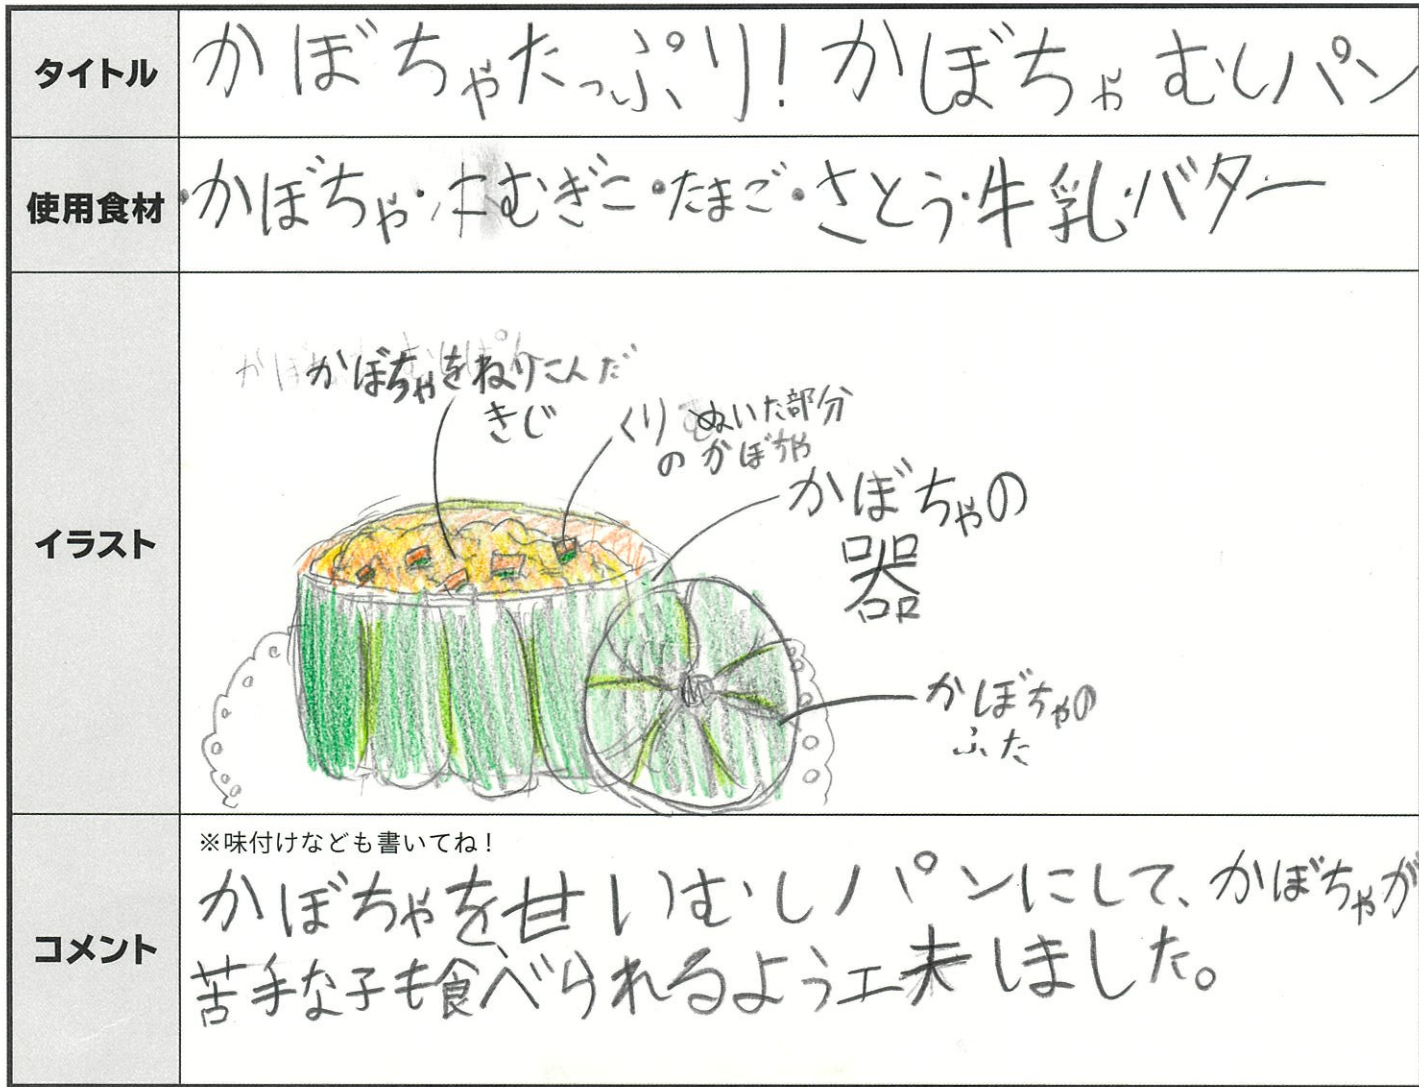 タイトル
かぼちゃたっぷり!かぼちゃむしパン
使用食材
・かぼちゃ・こむぎこ・たまご・さとう・牛乳・バター
イラスト
かぼちゃをねりこんだ
きじ
くりぬいた部分
のかぼちゃ
かぼちゃの
器
かぼちゃの
ふた
コメント
※味付けなども書いてね!
かぼちゃを甘いむしパンにして、かぼちゃが
苦手な子も食べられるよう工夫しました。